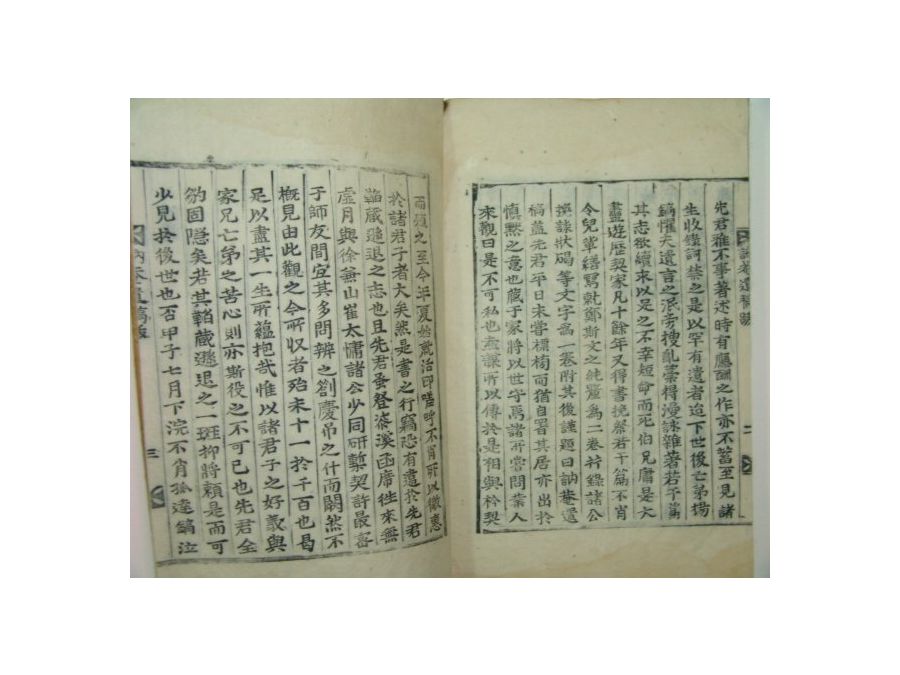 先君雅不事著述時有應酬之作亦不蓄至見諸
生收錄訶禁之是以罕有遺者迨下世後亡弟埸
鎬懼夫遺言之泯旁搜亂藁得漫詠雜著若干篇
其志欲續求以足之不幸短命而死伯兄庸是大
盡遊歷契家凡十餘年又得書挽祭若干篇不肖
令兒輩繕寫就鄭斯文之純釐為二卷幷錄諸公
撰誄狀碣等文字為一卷附其後謹題曰訥菴遺
稿蓋先君平日未甞標榜而猶自署其居亦出於
愼默之意也藏于家將以世守焉諸所嘗問業人
來觀曰是不可私也盍謀所以傳於是相與衿契
而殖之至今年夏始就活印嗟呼不肖所以徼惠
於諸君子者大矣然是書之行竊恐有違於先君
韜藏遜退之志也且先君蚤登溪函席徃來無
虛月與徐兼山崔太慵諸公少同研槧契許最密
于師友間宜其多問辨之劄慶吊之什而闕然不
槪見由此觀之今所収者殆未十一於千百也曷
足以盡其一生所蘊抱哉惟以諸君子之好義與
家兄亡弟之苦心則亦斯役之不可已也先君全
牣固隱矣若其韜藏遜退之一斑抑將賴是而可
少見於後世也否甲子七月下浣不肖孤達鎬泣
三